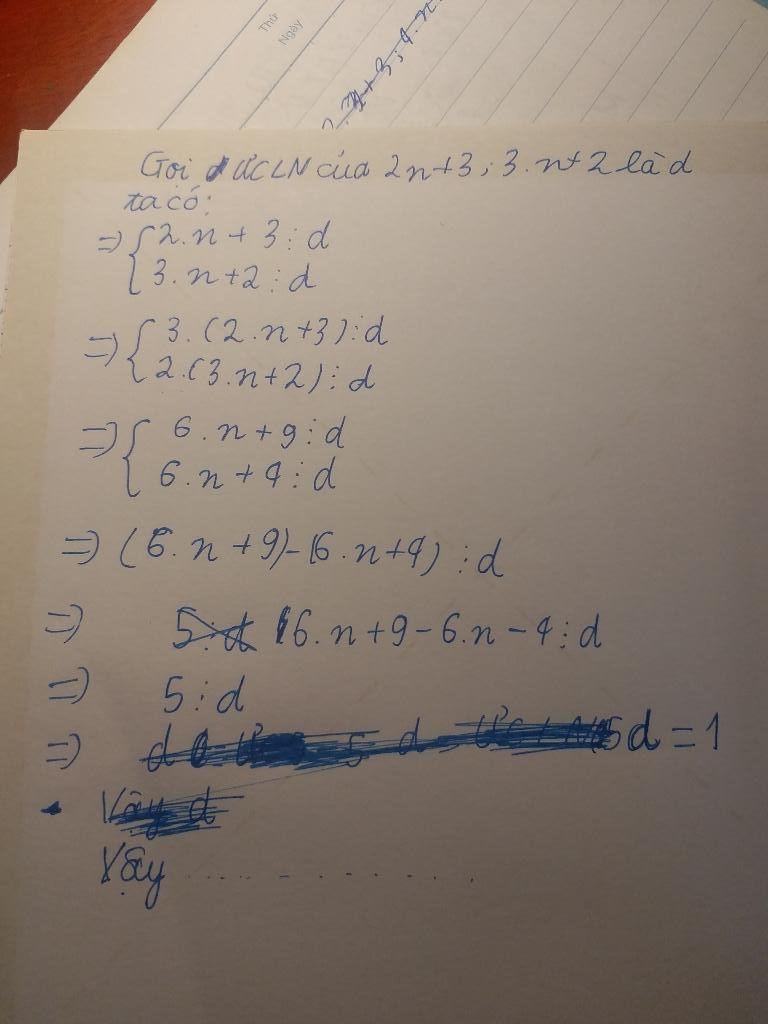 Thứ
Ngày
Gọi ƯCLN của 2n+3; 3.n+2 là d
ta có:
=> { 2.n + 3 ⋮ d
3.n+2 ⋮ d
=> { 3.(2.n+3) ⋮ d
2.(3.n+2) ⋮ d
=> { 6.n+9 ⋮ d
6.n+4 ⋮ d
=> (6.n+9)-(6.n+4) ⋮ d
=> 6.n+9-6.n-4 ⋮ d
=> 5 ⋮ d
=> d = 1
Vậy ............